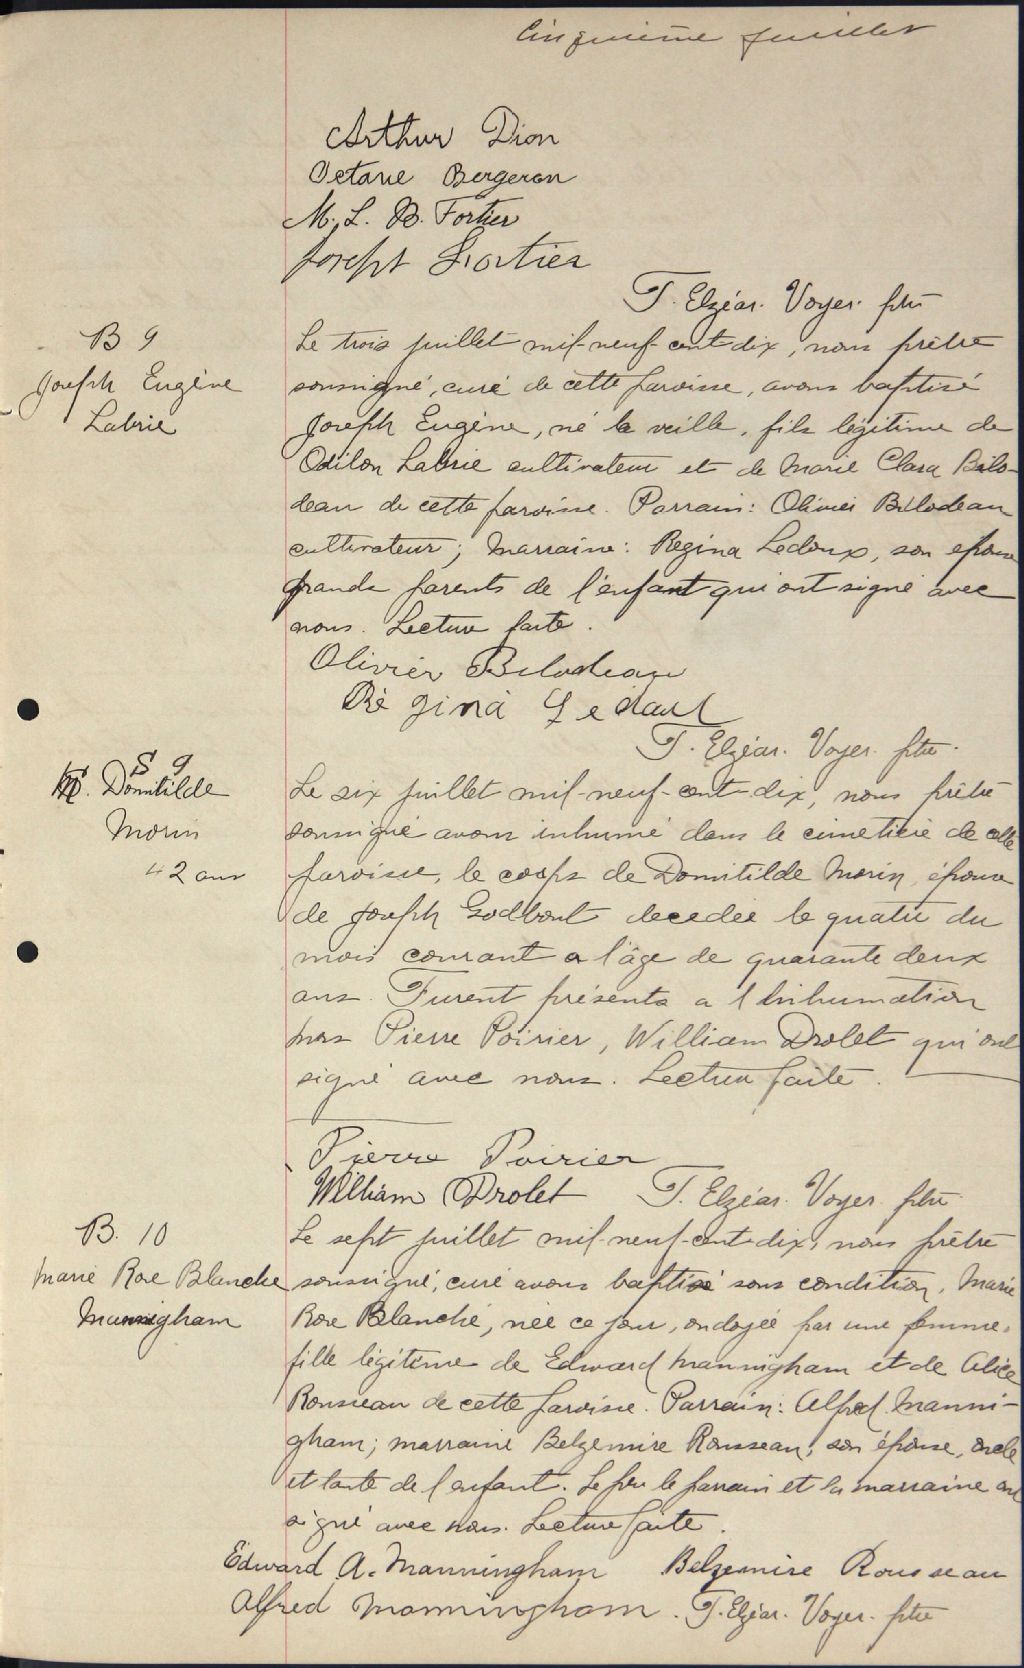 Cinquième feuillet
Arthur Dion
Octavie Bergeron
M. L. B. Fortier
Joseph Fortier
T. Elzéar. Voyer. ptre
B 9
Joseph Eugène
Labrie
Le trois juillet mil-neuf-cent-dix, nous prêtre
soussigné, curé de cette paroisse, avons baptisé
Joseph Eugène, né la veille, fils légitime de
Odilon Labrie cultivateur et de Marie Clara Bilo-
deau de cette paroisse. Parrain: Olivier Bilodeau
cultivateur; Marraine: Regina Ledoux, son épouse
grands parents de l'enfant qui ont signé avec
nous. Lecture faite.
Olivier Bilodeau
Régina Ledoux
T. Elzéar. Voyer. ptre.
S 9
M. Domitilde
Morin
42 ans
Le six juillet mil-neuf-cent-dix, nous prêtre
soussigné avons inhumé dans le cimetière de cette
paroisse, le corps de Domitilde Morin, épouse
de Joseph Godbout decedée le quatre du
mois courant a l'âge de quarante deux
ans. Furent présents a l'inhumation
Pierre Poirier, William Drolet qui ont
signé avec nous. Lecture faite.
Pierre Poirier
William Drolet T. Elzéar. Voyer. ptre
B. 10
Marie Rose Blanche
Manningham
Le sept juillet mil-neuf-cent-dix, nous prêtre
soussigné, curé avons baptisé sous condition, Marie
Rose Blanche, née ce jour, ondoyée par une femme,
fille légitime de Edward Manningham et de Alice
Rousseau de cette paroisse. Parrain: Alfred Manni-
gham; marraine Belzemire Rousseau, son épouse, oncle
et tante de l'enfant. Le père le parrain et la marraine ont
signé avec nous. Lecture faite.
Edward A. Manningham Belzemire Rousseau
Alfred Manningham. T. Elzéar. Voyer. ptre